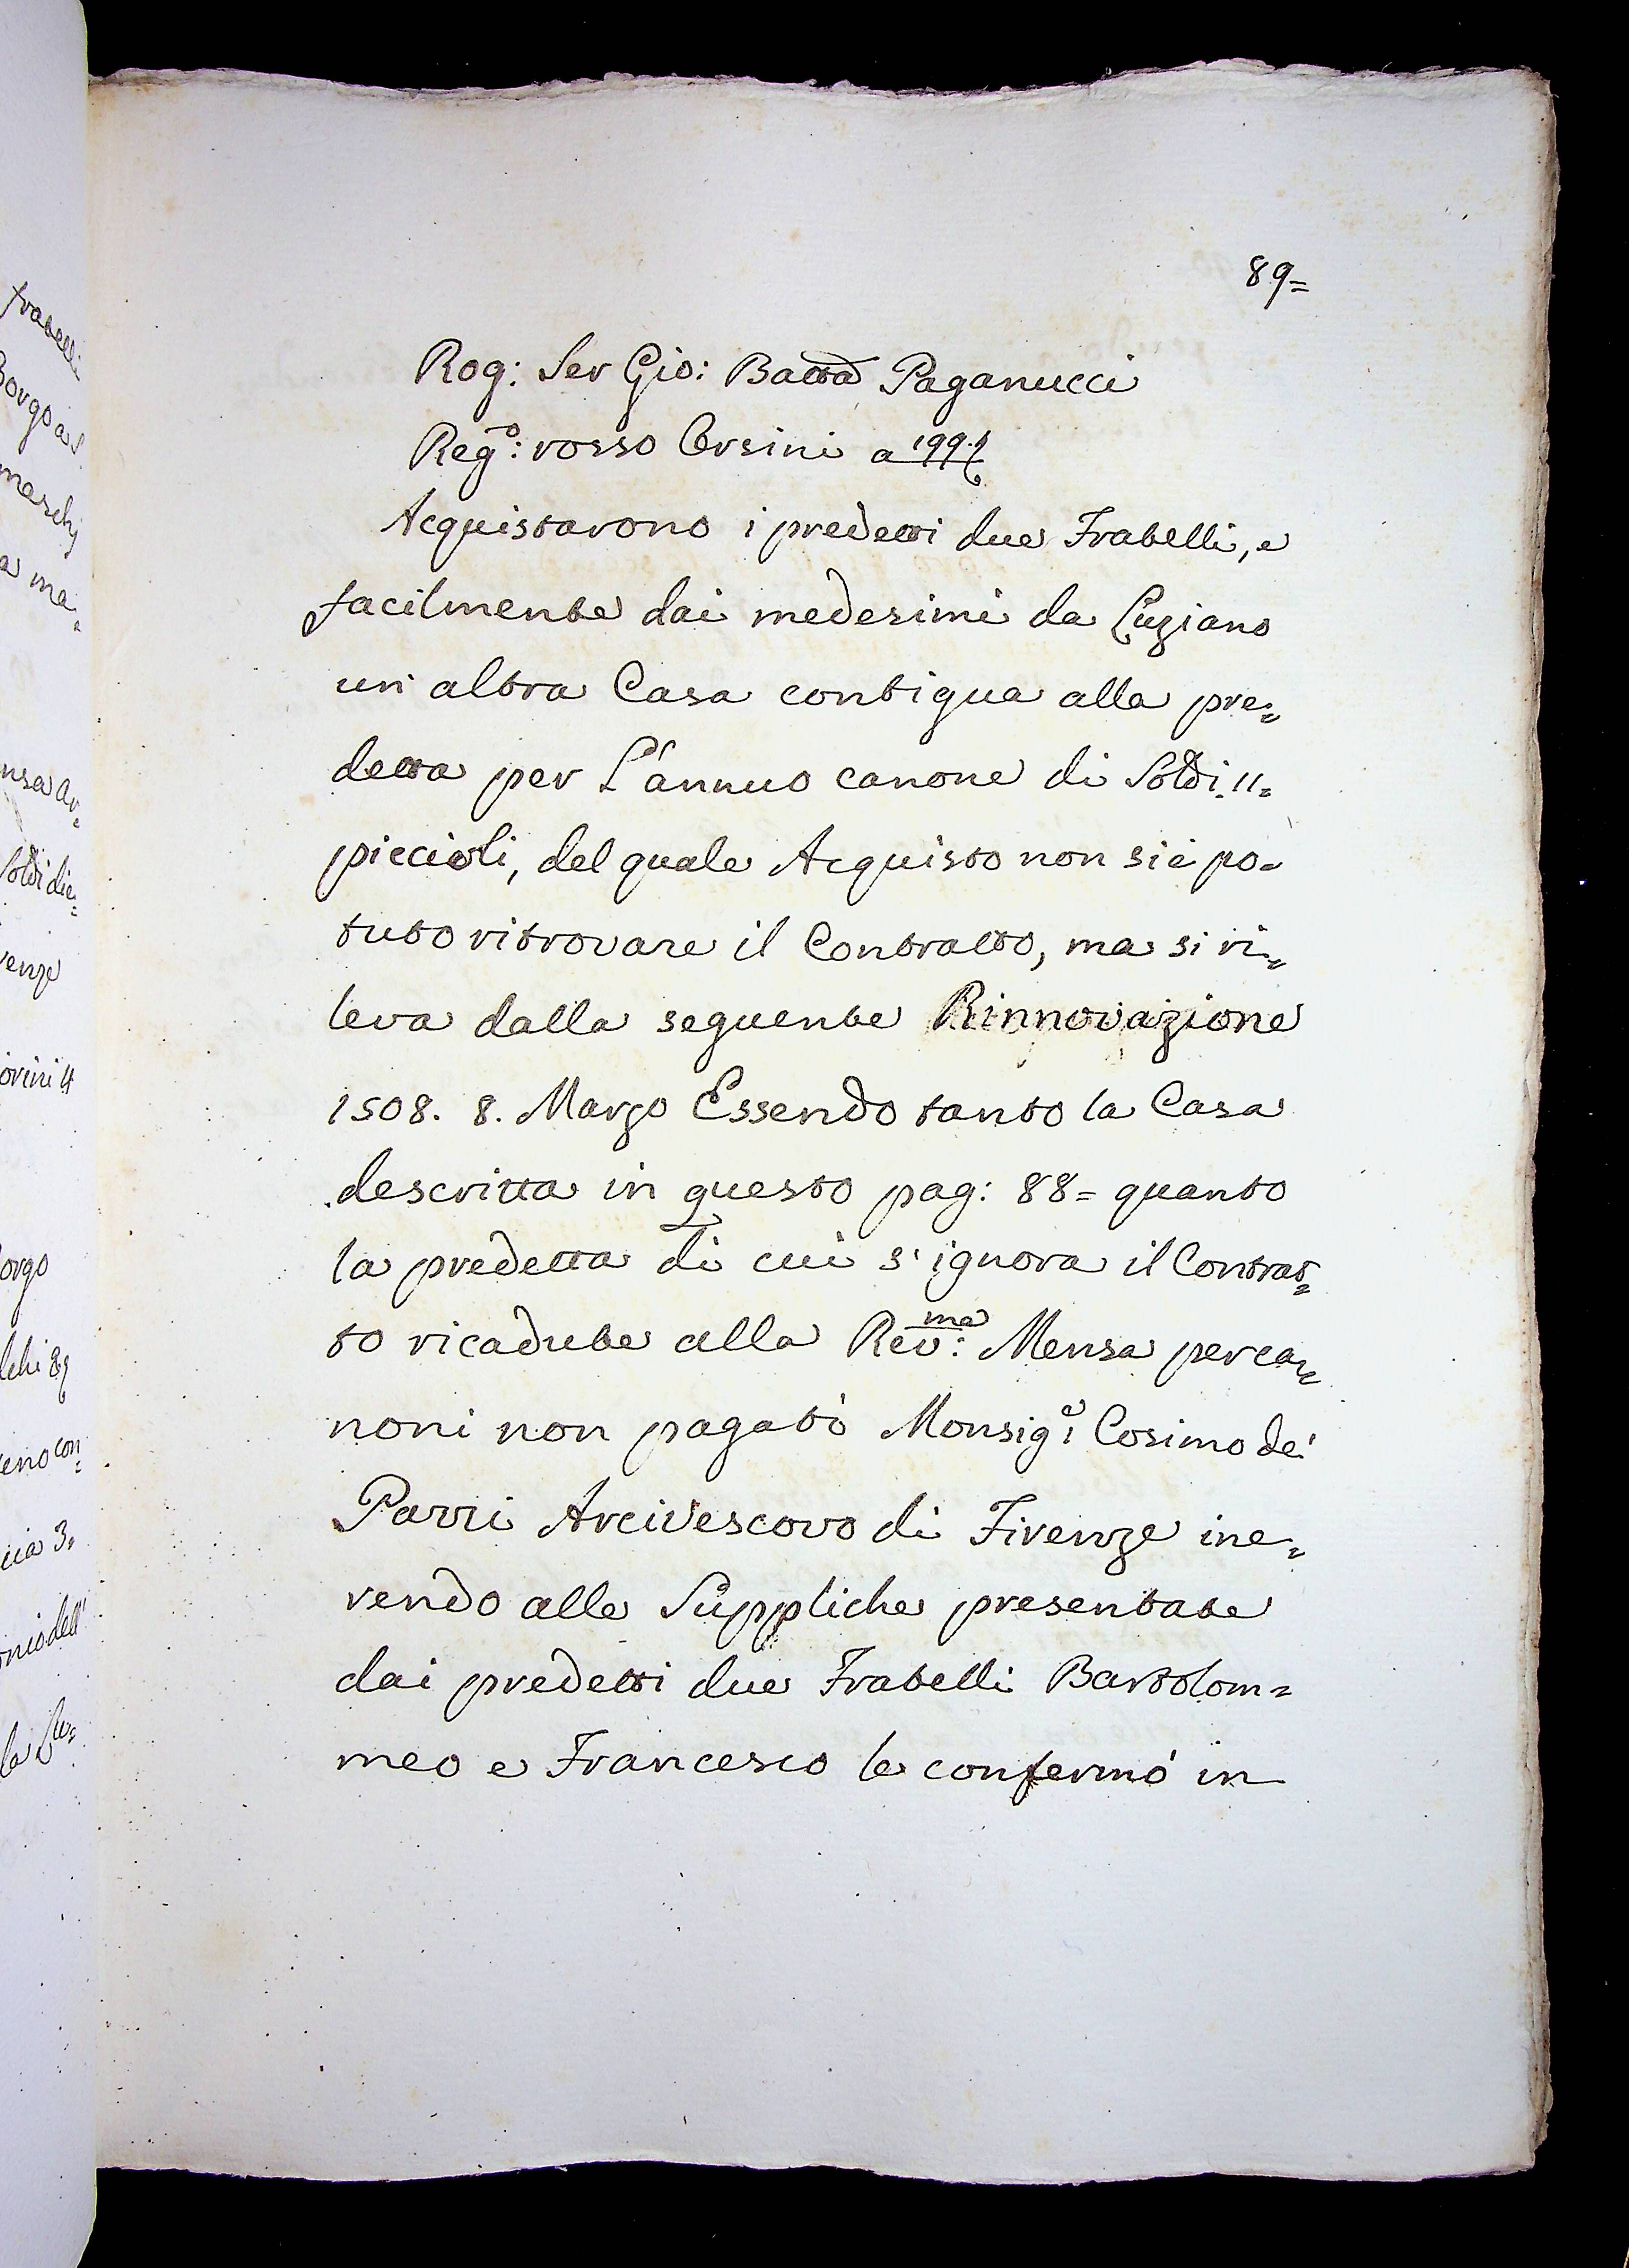 89=
Rog: Ser Gio: Batta Paganucci
Reg.o: rosso Orsini a 199.
Acquistarono i predetti due Fratelli, e
facilmente dai medesimi da Luziano
un altra Casa contigua alla pre=
detta per L'annuo canone di Soldi 11=
piccioli, del quale Acquisto non si è po=
tuto ritrovare il Contratto, ma si ri=
leva dalla seguente Rinnovazione
1508. 8. Marzo Essendo tanto la Casa
descritta in questo pag: 88= quanto
la predetta di cui s'ignora il Contrat=
to ricadute alla Rev:ma Mensa per ca=
noni non pagati Monsig:e Cosimo de'
Pazzi Arcivescovo di Firenze ine=
rendo alle Suppliche presentate
dai predetti due Fratelli Bartolom=
meo e Francesco le confermò in
fratelli
Borgo a S.
maschj
a ma=
nsa Ar=
Soldi die=
renze
orini 4
orgo
lchi 89
eno con=
cia 3.
onio dell'